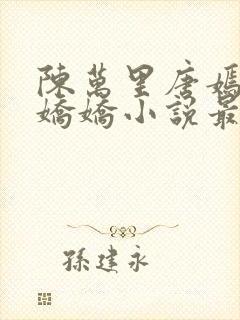 陳萬里唐嫣
嬌嬌小說最
孫建永